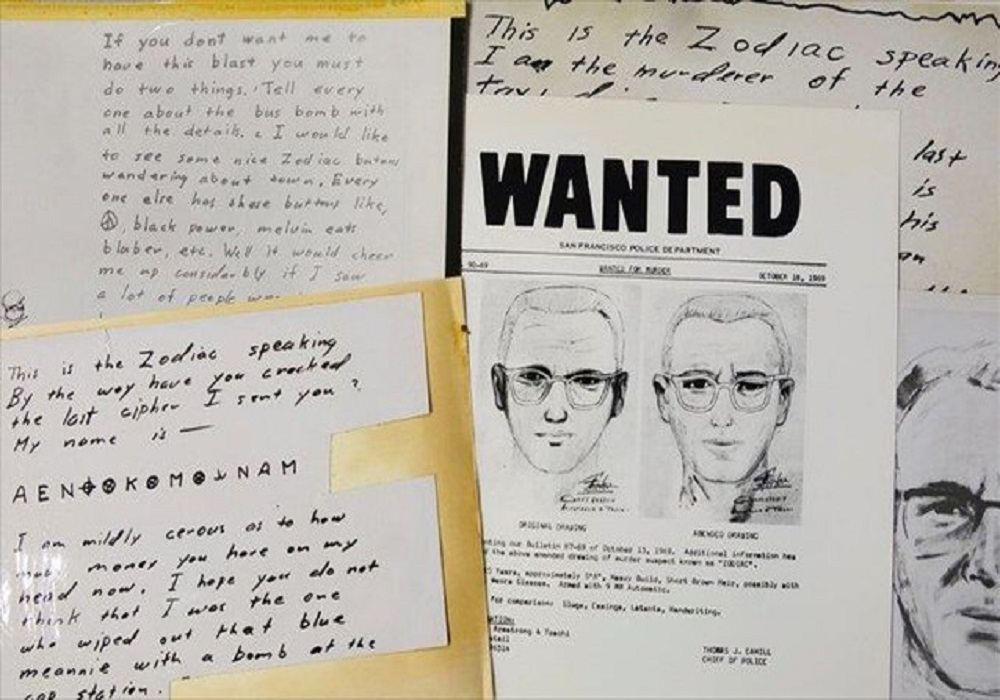 If you dont want me to
have this blast you must
do two things. Tell every
one about the bus bomb with
all the details. I would like
to see some nice Zodiac butons
wandering about town. Every
one else has these buttons like,
black power, melvin eats
blaber, etc. Well it would cheer
me up considerbly if I saw
a lot of people
This is the Zodiac speaking
By the way have you cracked
the last cipher I sent you?
My name is —
AEN⊕⊗K⊗M⊗NAM
I am mildly cerous as to how
money you have on my
head now. I hope you do not
think that I was the one
who wiped out that blue
meannie with a bomb at the
station.
This is the Zodiac speaking
I am the murderer of the
last
is
his
WANTED
SAN FRANCISCO POLICE DEPARTMENT
90-69 WANTED FOR MURDER OCTOBER 18, 1969
ORIGINAL DRAWING AMENDED DRAWING
our Bulletin 87-69 of October 13, 1969. Additional information has
the above amended drawing of murder suspect known as "ZODIAC".
Years, approximately 5'8", Heavy Build, Short Brown Hair, possibly with
Glasses. Armed with 9 MM Automatic.
For comparison: Slugs, Casings, Latents, Handwriting.
Armstrong & Toschi
THOMAS J. CAHILL
CHIEF OF POLICE